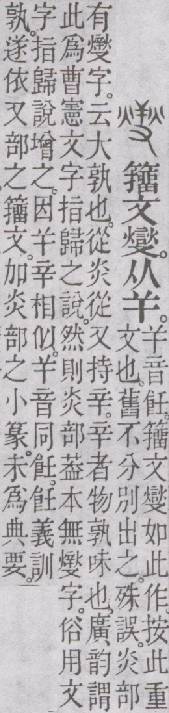 籒文燮。从𢆉。
𢆉音飪。籒文燮如此作。按此重
文也。舊不分別出之。殊誤。炎部
有燮字。云大孰也。從炎從又持辛。辛者物孰味也。廣韵謂
此爲曹憲文字指歸之說。然則炎部葢本無燮字。俗用文
字指歸說增之。因𢆉辛相似。𢆉音同飪。飪義訓
孰。遂依又部之籒文。加炎部之小篆。未爲典要。